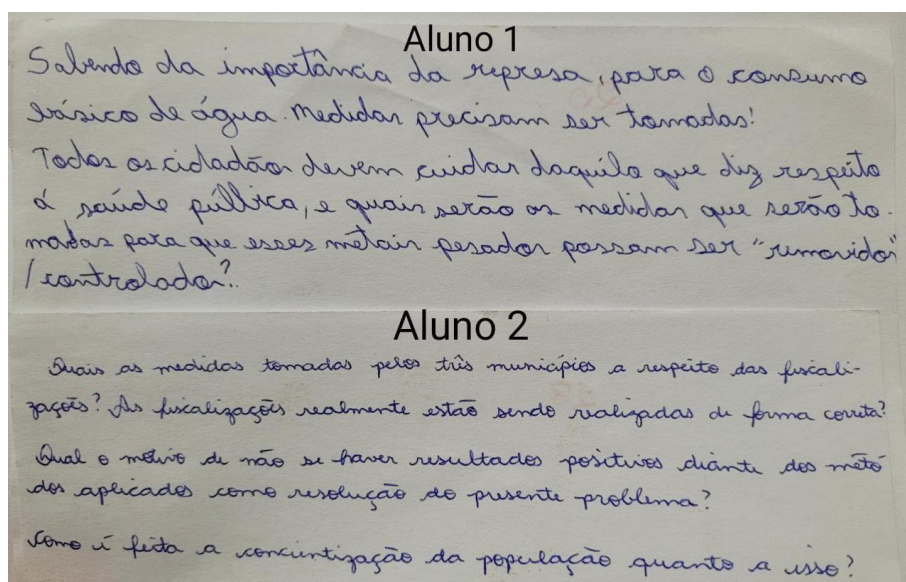 Aluno 1
Sabendo da importância da represa, para o consumo
básico de água. Medidas precisam ser tomadas!
Todos os cidadãos devem cuidar daquilo que diz respeito
á saúde pública, e quais serão as medidas que serão to-
madas para que esses metais pesados possam ser "removidos"
/controlados?
Aluno 2
Quais as medidas tomadas pelos três municípios a respeito das fiscali-
zações? As fiscalizações realmente estão sendo realizadas de forma correta?
Qual o motivo de não se haver resultados positivos diante dos méto
dos aplicados como resolução do presente problema?
Como é feita a concientização da população quanto a isso?